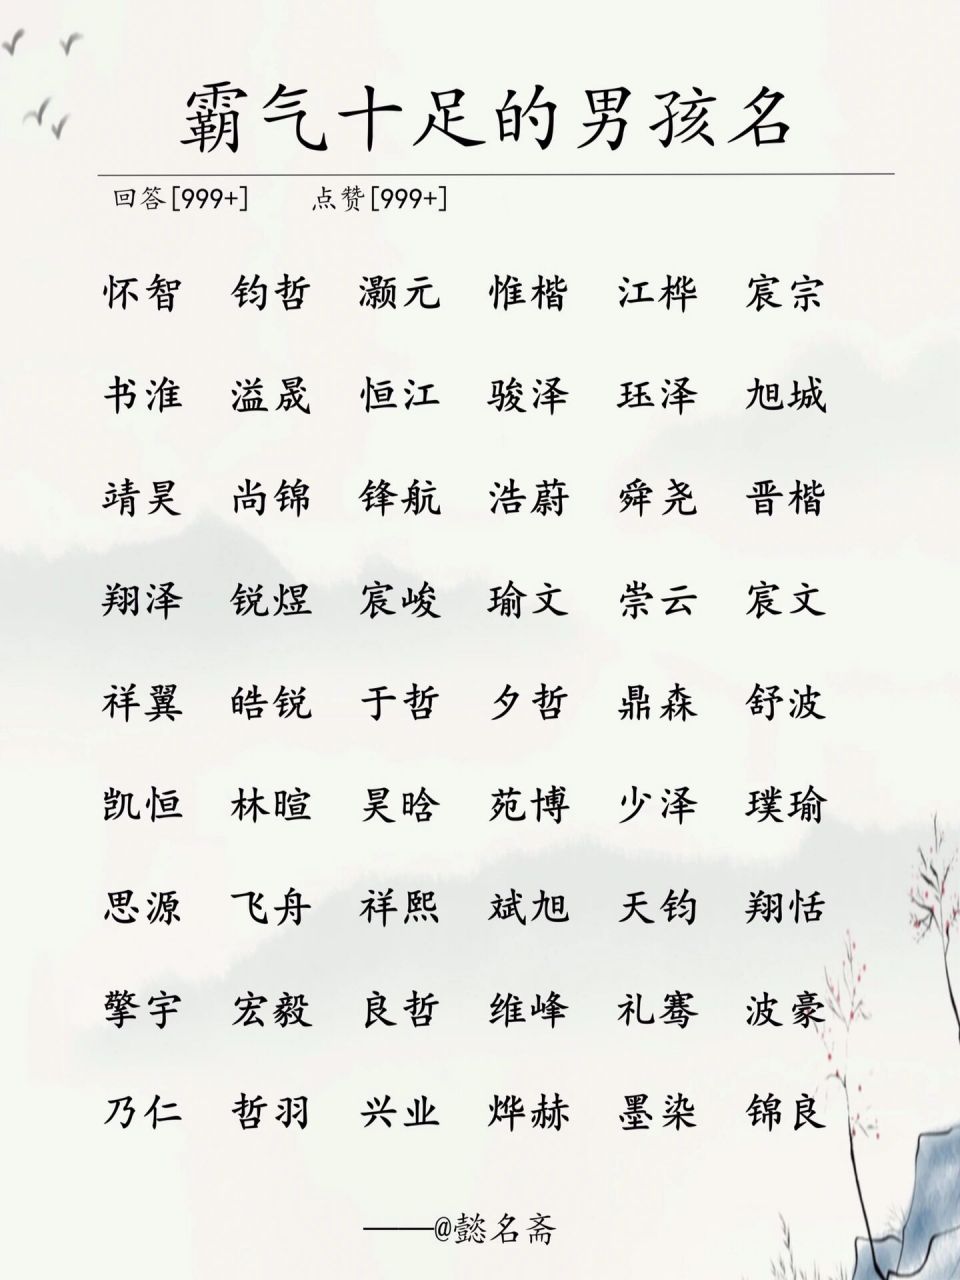 霸气十足的男孩名
回答[999+] 点赞[999+]
怀智 钧哲 灏元 惟楷 江桦 宸宗
书淮 溢晟 恒江 骏泽 珏泽 旭城
靖昊 尚锦 锋航 浩蔚 舜尧 晋楷
翔泽 锐煜 宸峻 瑜文 崇云 宸文
祥翼 皓锐 于哲 夕哲 鼎森 舒波
凯恒 林暄 昊晗 苑博 少泽 璞瑜
思源 飞舟 祥熙 斌旭 天钧 翔恬
擎宇 宏毅 良哲 维峰 礼骞 波豪
乃仁 哲羽 兴业 烨赫 墨染 锦良
——@懿名斋